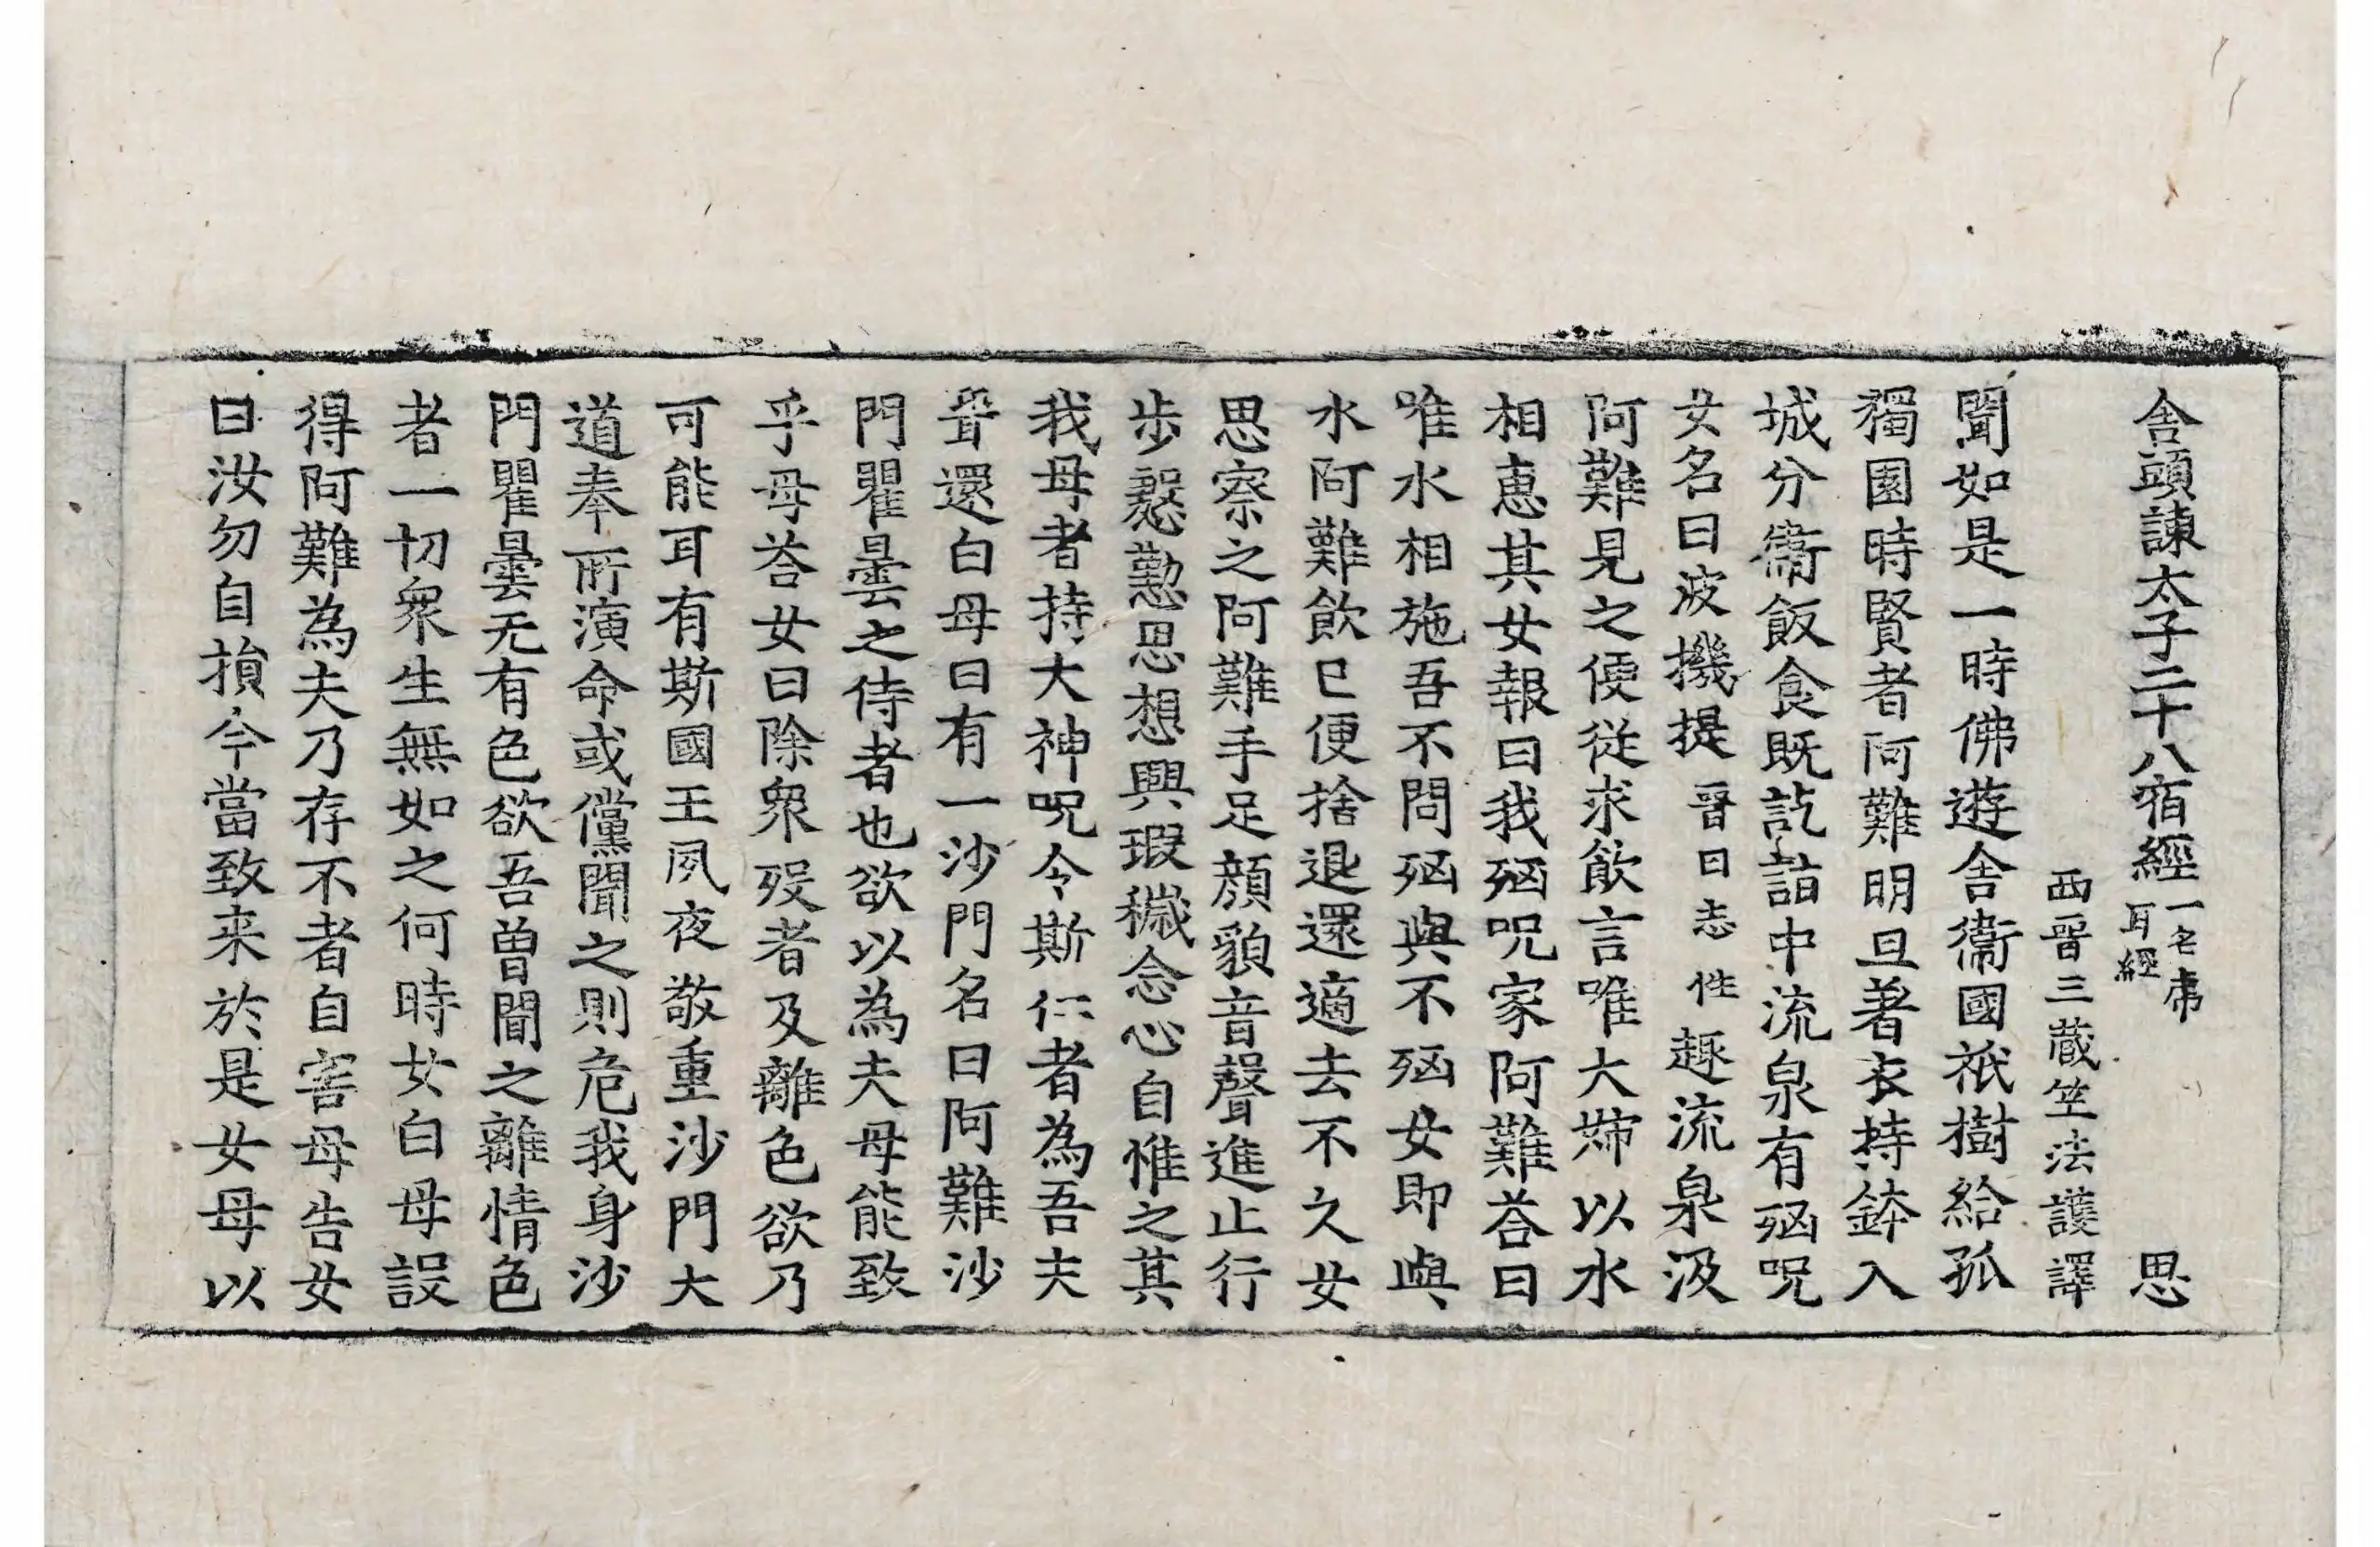 舎頭諫太子二十八宿經一名虎耳經 思
西晋三藏竺法護譯
聞如是一時佛遊舎衞國祇樹給孤
獨園時賢者阿難明旦著衣持鉢入
城分衞飯食既訖詣中流泉有㓙呪
女名曰波機提晋曰志性趣流泉汲
阿難見之便從求飲言唯大姉以水
相惠其女報曰我㓙呪家阿難荅曰
唯水相施吾不問㓙與不㓙女即與
水阿難飲已便捨退還適去不久女
思察之阿難手足顔貌音聲進止行
步慇懃思想興瑕穢念心自惟之其
我母者持大神呪令斯仁者為吾夫
耳還白母曰有一沙門名曰阿難沙
門瞿曇之侍者也欲以為夫母能致
乎母荅女曰除衆殁者及離色欲乃
可能耳有斯國王夙夜敬重沙門大
道奉所演命或儻聞之則危我身沙
門瞿曇无有色欲吾曽聞之離情色
者一切衆生無如之何時女白母設
得阿難為夫乃存不者自害母告女
曰汝勿自損今當致来於是女母以